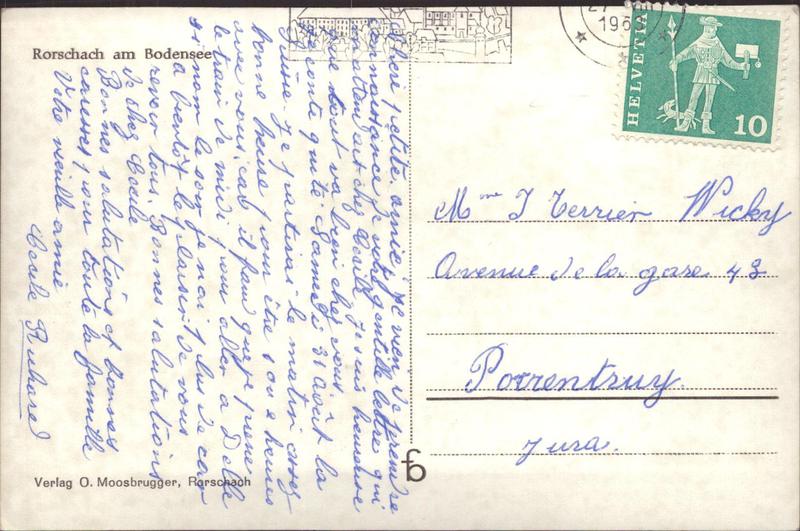 Rorschach am Bodensee
1963
HELVETIA
10
Chère petite amie, je viens de prendre
connaissance de votre gentille lettre qui
m'attendait chez Cécile. Je suis heureuse
que tout va bien chez vous.
Je compte quitté Samedi 31 Août la
Suisse. Je partirai le matin assez
bonne heure pour être 10 heures
avec vous, car il faut que je prenne
le train de midi pour aller a Delle
sinon le soir je n'ai plus de car
a bientôt le plaisir de vous
revoir tous. Bonnes salutations
de chez Cécile
Bonnes salutations et bonnes
caresses pour toute la famille
Votre vieille amie
Cécile
Mme J Terrier Wicky
Avenue de la gare 43
Porrentruy
Jura.
Verlag O. Moosbrugger, Rorschach